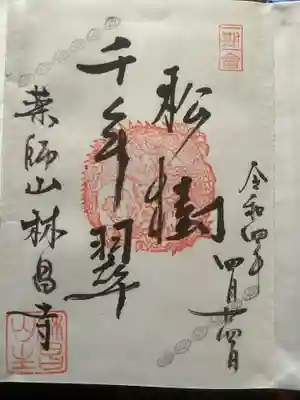 令和四年
四月十四日
松樹
千年翠
薬師山林昌寺